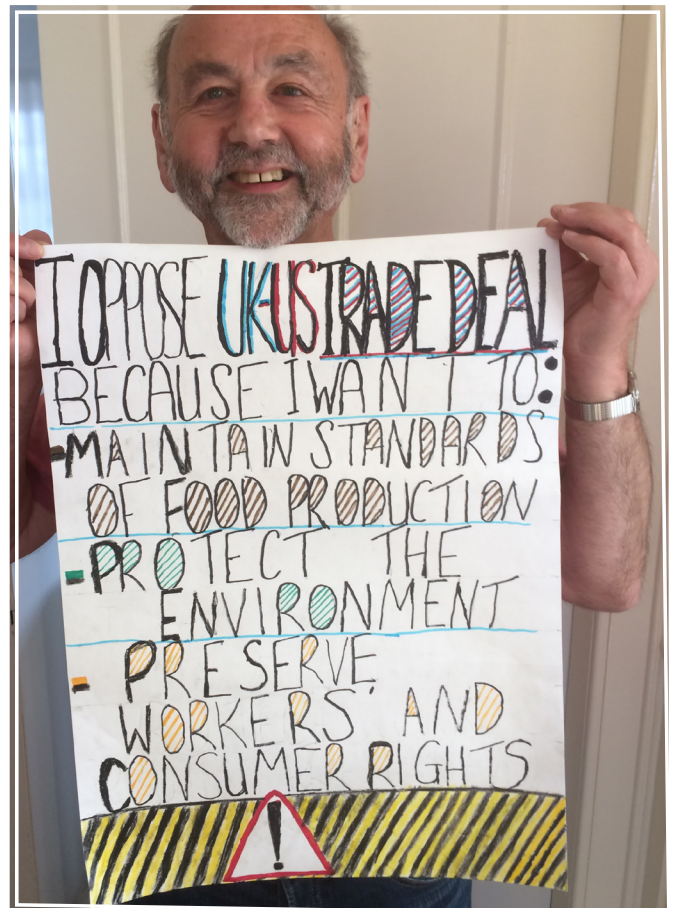 I OPPOSE UK-US TRADE DEAL
BECAUSE I WANT TO:
-MAINTAIN STANDARDS
OF FOOD PRODUCTION
- PROTECT THE
ENVIRONMENT
- PRESERVE
WORKERS' AND
CONSUMER RIGHTS
!